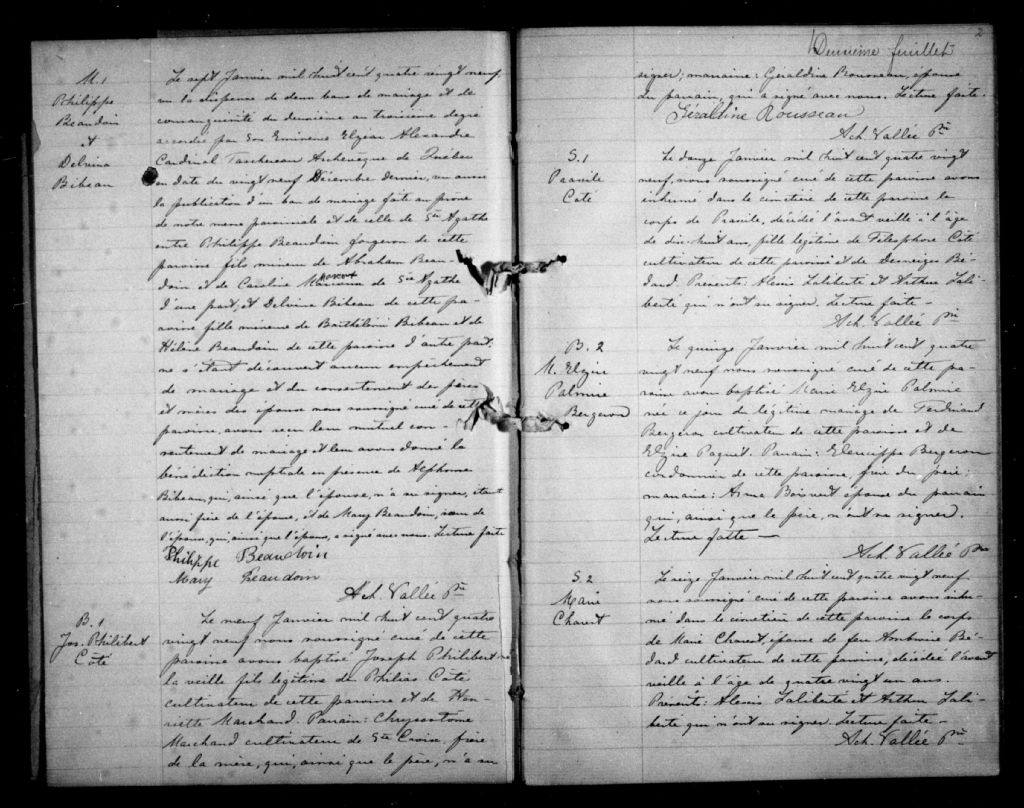 M. 1
Philippe
Beaudoin
et
Delvina
Bibeau
Le sept Janvier mil huit cent quatre vingt neuf,
vu la dispense de deux bans de mariage et de
consanguinité du deuxième au troisième degré
accordée par Son Eminence Elzéar Alexandre
Cardinal Taschereau Archevêque de Québec
en date du vingt neuf Décembre dernier, vu aussi
la publication d'un ban de mariage faite au prone
de notre messe paroissiale et de celle de Ste Agathe
entre Philippe Beaudoin forgeron de cette
paroisse fils mineur de Abraham Beau-
doin et de Caroline de Ste Agathe
d'une part, et Delvina Bibeau de cette pa-
roisse fille mineure de Barthélemi Bibeau et de
Hélène Beaudoin de cette paroisse d'autre part,
ne s'étant découvert aucun empêchement
de mariage et du consentement des pères
et mères des époux nous soussigné curé de cette
paroisse, avons reçu leur mutuel con-
sentement de mariage et leur avons donné la
bénédiction nuptiale en présence de Alphonse
Bibeau, qui, ainsi que l'épouse, n'a su signer, étant
aussi frère de l'épouse, et de Mary Beaudoin, sœur de
l'époux, qui, ainsi que l'époux, a signé avec nous. Lecture faite
Philippe Beaudoin
Mary Beaudoin
Ach. Vallée Ptre
B. 1
Jos. Philibert
Côté
Le neuf Janvier mil huit cent quatre
vingt neuf nous soussigné curé de cette
paroisse avons baptisé Joseph Philibert né
la veille fils légitime de Philias Côté
cultivateur de cette paroisse et de Hen-
riette Marchand. Parrain: Chrysostome
Marchand cultivateur de Ste Croix, frère
de la mère, qui, ainsi que le père, n'a su
2
Deuxième feuillet
signer; marraine: Géraldine Rousseau, épouse
du parrain, qui a signé avec nous. Lecture faite.
Géraldine Rousseau
Ach. Vallée Ptre
S. 1
Praxile
Coté
Le douze Janvier mil huit cent quatre vingt
neuf, nous soussigné curé de cette paroisse avons
inhumé dans le cimetière de cette paroisse le
corps de Praxile, décédée l'avant veille à l'âge
de dix-huit ans, fille légitime de Télesphore Coté
cultivateur de cette paroisse et de Demerize Bé-
dard. Présents: Alexis Laliberté et Arthur Lali-
berté qui n'ont su signer. Lecture faite -
Ach. Vallée Ptre
B. 2
M. Elzire
Palmire
Bergeron
Le quinze Janvier mil huit cent quatre
vingt neuf nous soussigné curé de cette pa-
roisse avons baptisé Marie Elzire Palmire
née ce jour du légitime mariage de Ferdinand
Bergeron cultivateur de cette paroisse et de
Elzire Paquet. Parrain: Eleusippe Bergeron
cordonnier de cette paroisse, frère du père;
marraine: Arma Boisvert épouse du parrain
qui, ainsi que le père, n'ont su signer.
Lecture faite -
Ach. Vallée Ptre
S. 2
Marie
Charest
Le seize Janvier mil huit cent quatre vingt neuf
nous soussigné curé de cette paroisse avons inhu-
mé dans le cimetière de cette paroisse le corps
de Marie Charest épouse de feu Ambroise Bé-
dard cultivateur de cette paroisse, décédée l'avant
veille à l'âge de quatre vingt un ans.
Présents: Alexis Laliberté et Arthur Lali-
berté qui n'ont su signer. Lecture faite -
Ach. Vallée Ptre